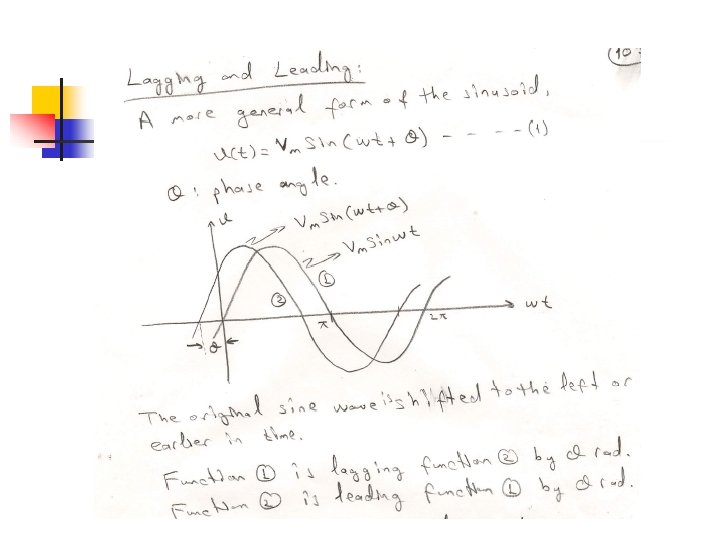 (10)
Lagging and Leading:
A more general form of the sinusoid,
v(t) = Vm Sin(wt + θ) - - - - (1)
θ : phase angle.
v
Vm Sin(wt+θ)
Vm Sinwt
①
②
wt
π
2π
θ
The original sine wave is shifted to the left or
earlier in time.
Function ① is lagging function ② by θ rad.
Function ② is leading function ① by θ rad.